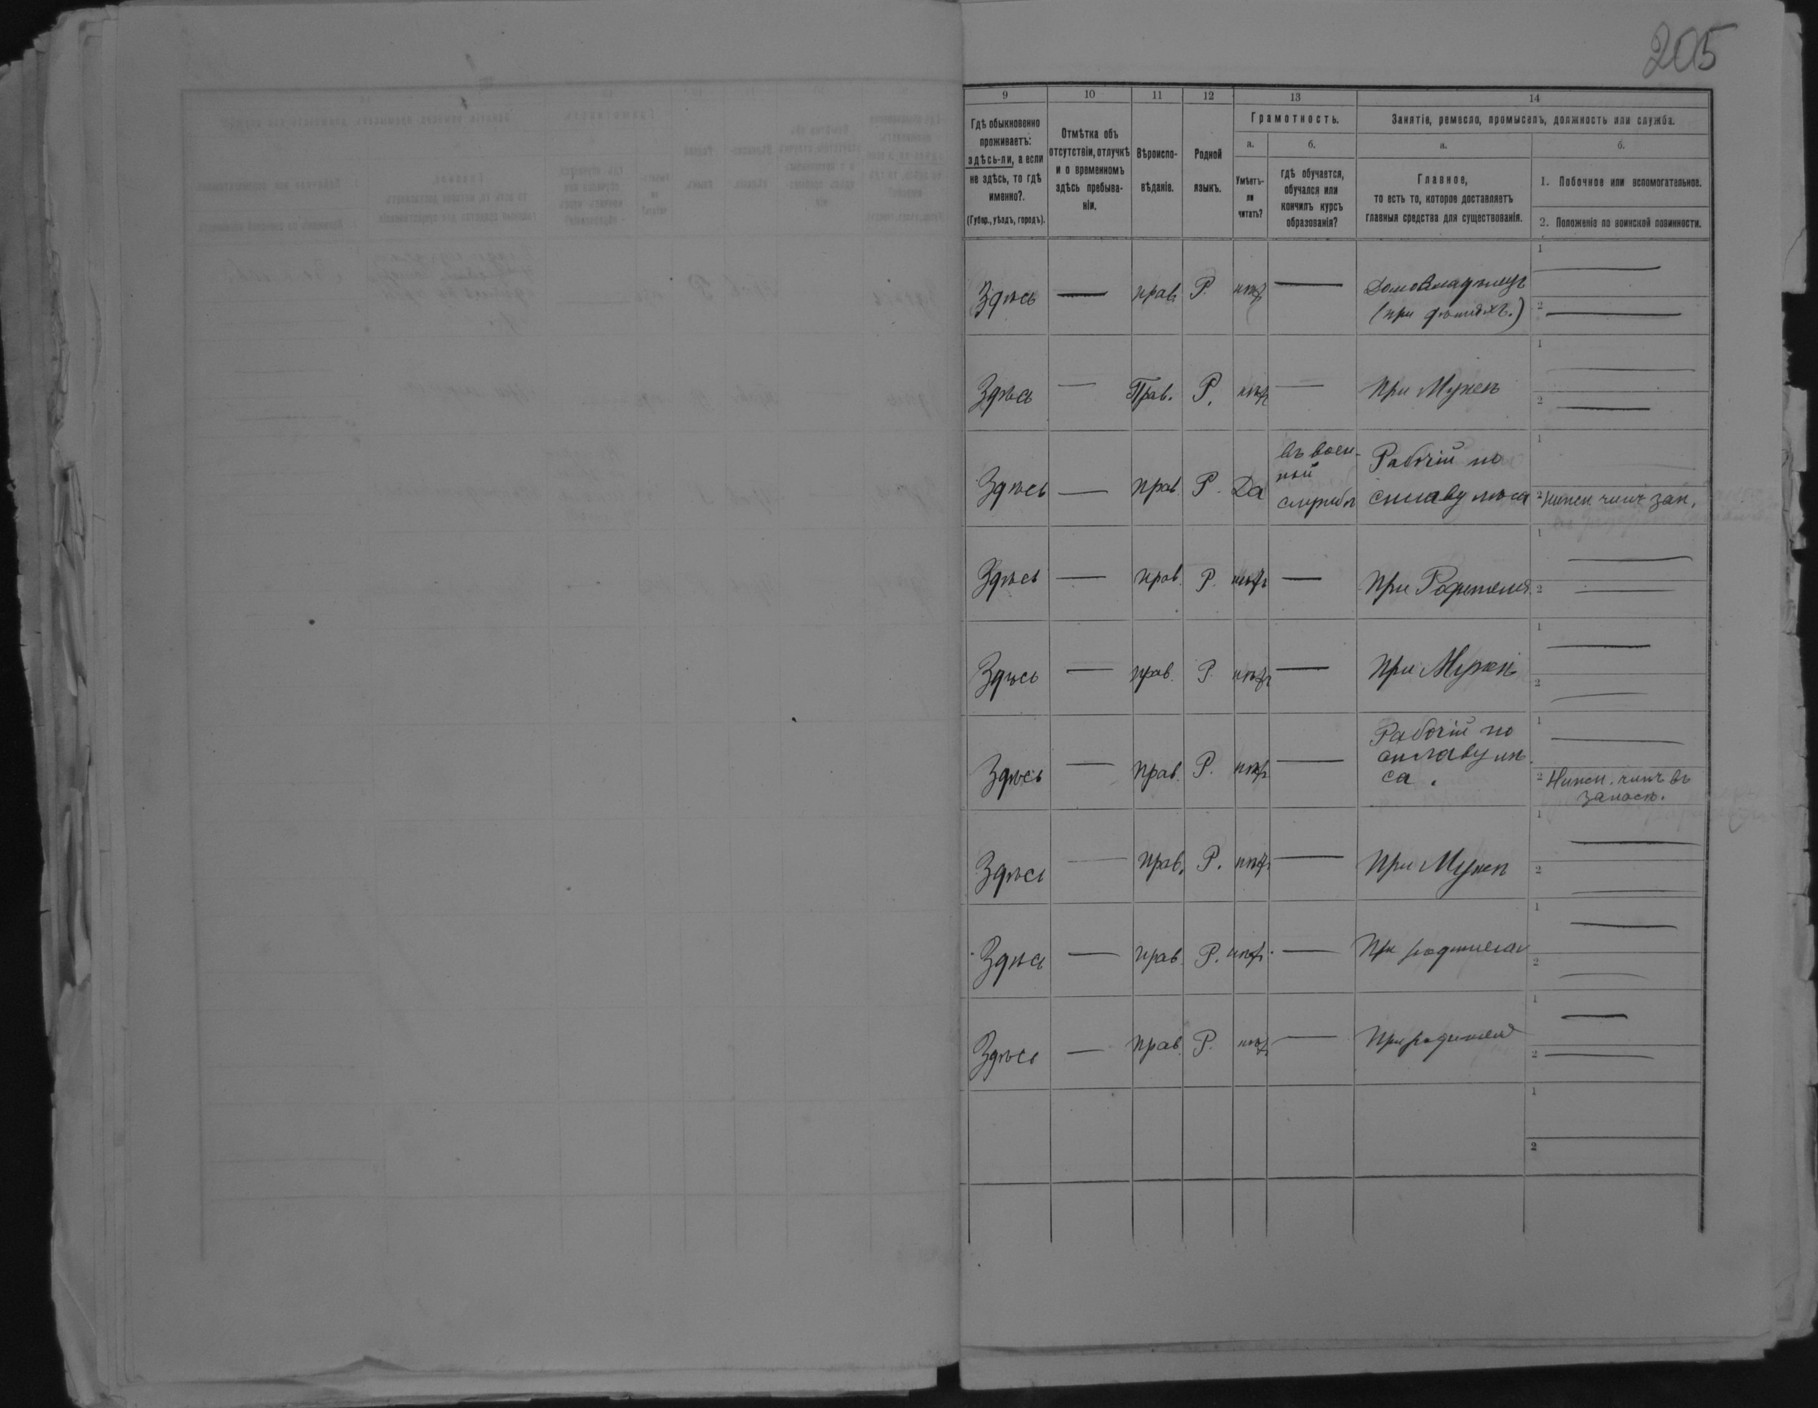 205
9 10 11 12 13 14
Гдѣ обыкновенно
проживаетъ:
здѣсь-ли, а если
не здѣсь, то гдѣ
именно?
(Губер., уѣздъ, городъ).
Отмѣтка объ
отсутствіи, отлучкѣ
и о временномъ
здѣсь пребыва-
ніи.
Вѣроиспо-
вѣданіе.
Родной
языкъ.
Грамотность.
а. б.
Умѣетъ-
ли
читать?
гдѣ обучается,
обучался или
кончилъ курсъ
образованія?
Занятіе, ремесло, промыселъ, должность или служба.
а. б.
Главное,
то есть то, которое доставляетъ
главныя средства для существованія.
1. Побочное или вспомогательное.
2. Положеніе по воинской повинности.
Здѣсь — прав. Р. нѣтъ — Домовладѣлецъ
(при дѣтяхъ.)
1 —
2 —
Здѣсь — Прав. Р. нѣтъ — При Мужѣ
1 —
2 —
Здѣсь — прав. Р. Да
въ воен-
ной
службѣ
Рабочій по
сплаву лѣса
1
2 Нижн чинъ зап.
Здѣсь — прав. Р. нѣтъ — При Родителя
1 —
2 —
Здѣсь — прав. Р. нѣтъ — При Мужѣ
1 —
2 —
Здѣсь — прав. Р. нѣтъ —
Рабочій по
сплаву лѣ
са.
1 —
2 Нижн. чинъ въ
запасѣ.
Здѣсь — прав. Р. нѣтъ — При Мужѣ
1 —
2 —
Здѣсь — прав. Р. нѣтъ — При родителях
1 —
2 —
Здѣсь — прав. Р. нѣтъ — При родителя
1 —
2 —
1
2